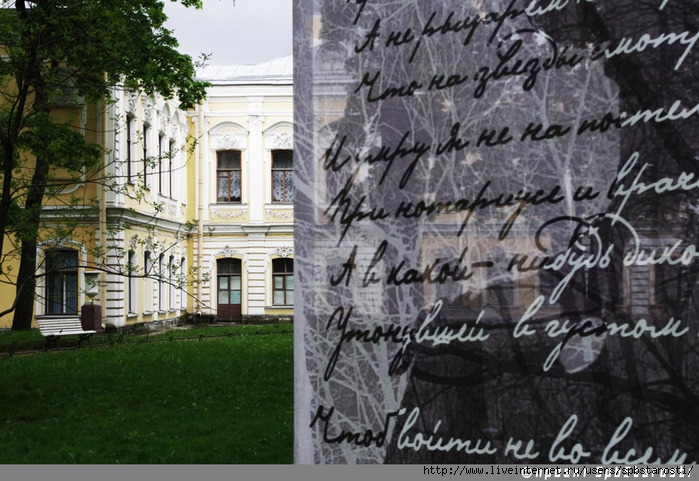 А не рыцарем
Что на звезды смотр
И умру я не на постел
При нотариусе и врач
А в какой-нибудь дико
Утонувшей в густом
Чтоб войти не во всем
http://www.liveinternet.ru/users/spbstarosti/